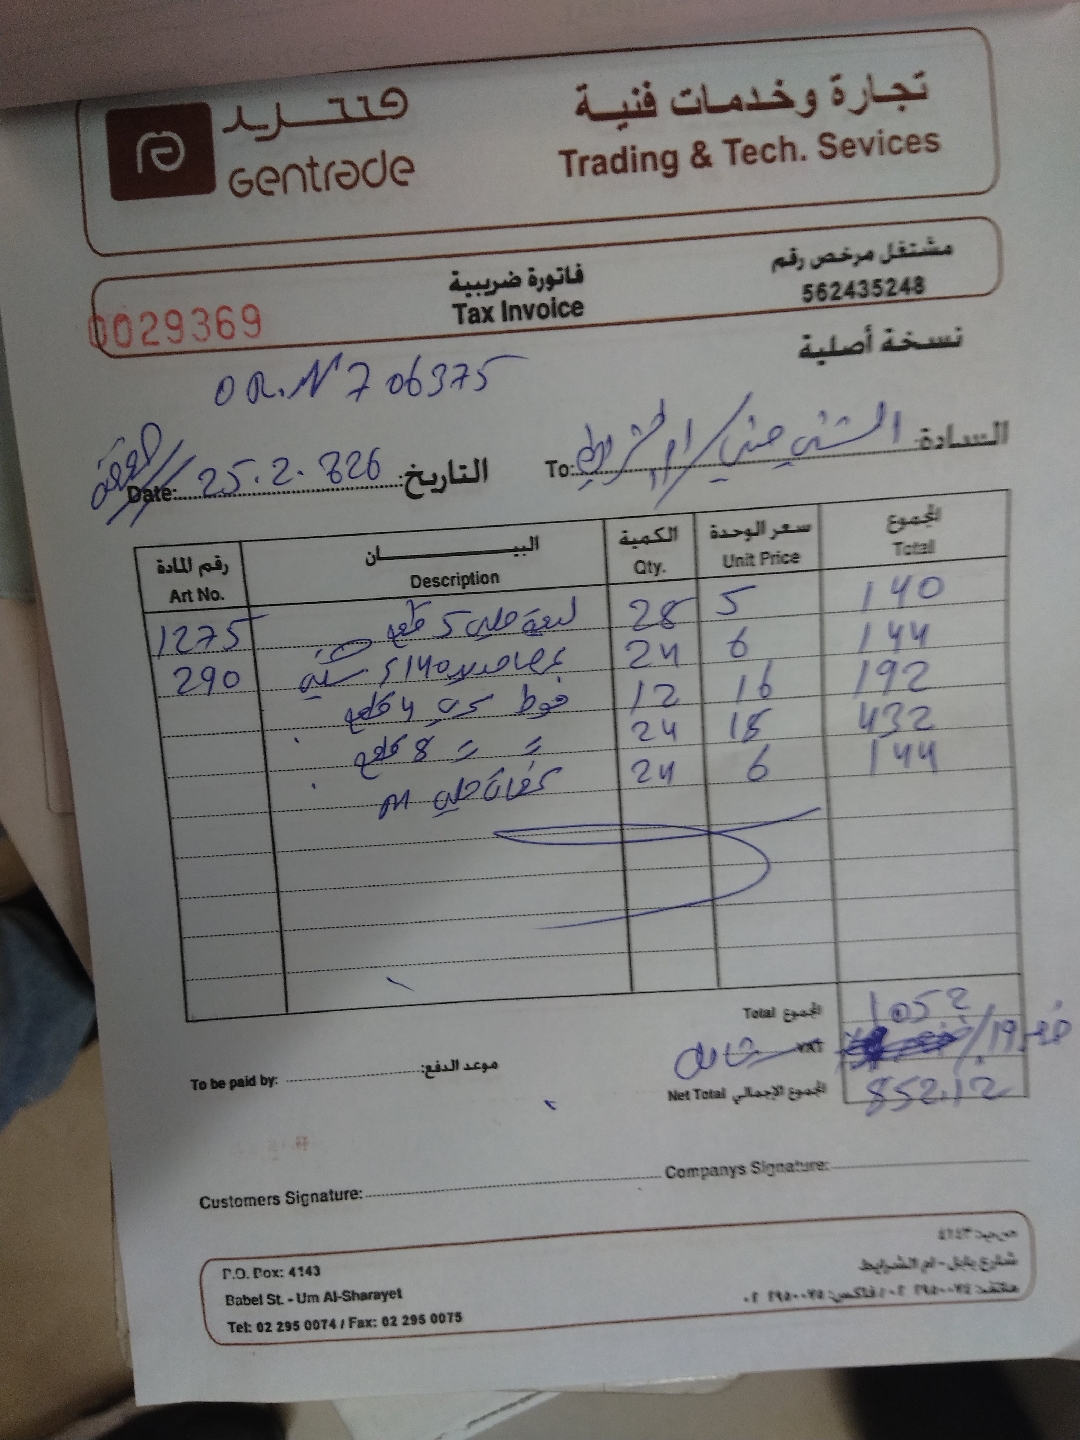 جنتريد
Gentrade
تجارة وخدمات فنية
Trading & Tech. Sevices
فاتورة ضريبية
Tax Invoice
مشتغل مرخص رقم
562435248
0029369
نسخة أصلية
OR.N 706375
السادة:
To:
التاريخ:
Date: 25.2.2026
رقم المادة البيــــــان الكمية سعر الوحدة المجموع
Art No. Description Qty. Unit Price Total
1275 5 قطع 28 5 140
290 140 24 6 144
فوط 4 قطع 12 16 192
= = 8 قطع 24 18 432
M 24 6 144
Total المجموع 1052
VAT
Net Total المجموع الإجمالي 852.12
To be paid by: موعد الدفع:
Customers Signature: Companys Signature:
P.O. Box: 4143
Babel St. - Um Al-Sharayet
Tel: 02 295 0074 / Fax: 02 295 0075
ص.ب: ٤١٤٣
شارع بابل - ام الشرايط
هاتف: ٠٢ ٢٩٥٠٠٧٤ / فاكس: ٠٢ ٢٩٥٠٠٧٥